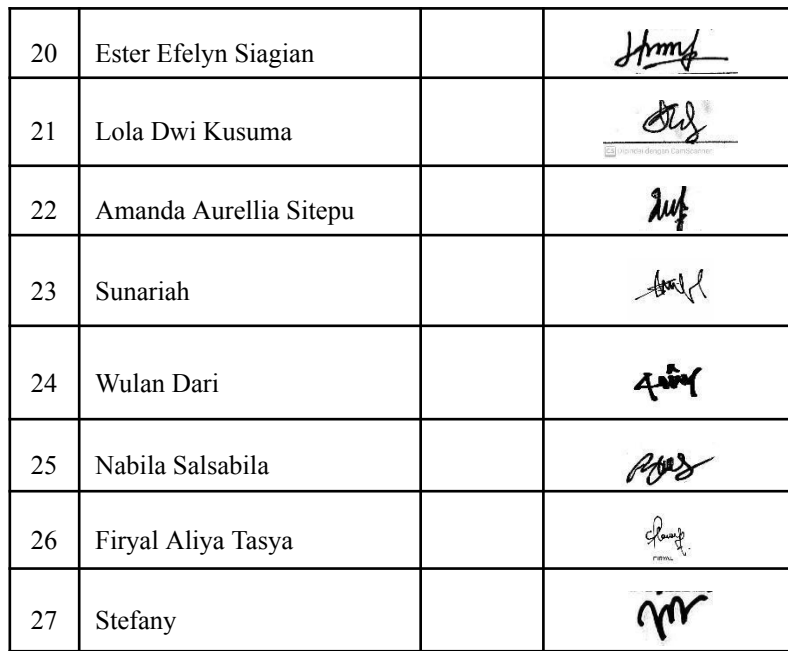 20 Ester Efelyn Siagian
21 Lola Dwi Kusuma
Dipindai dengan CamScanner
22 Amanda Aurellia Sitepu
23 Sunariah
24 Wulan Dari
25 Nabila Salsabila
26 Firyal Aliya Tasya
FIRYAL
27 Stefany